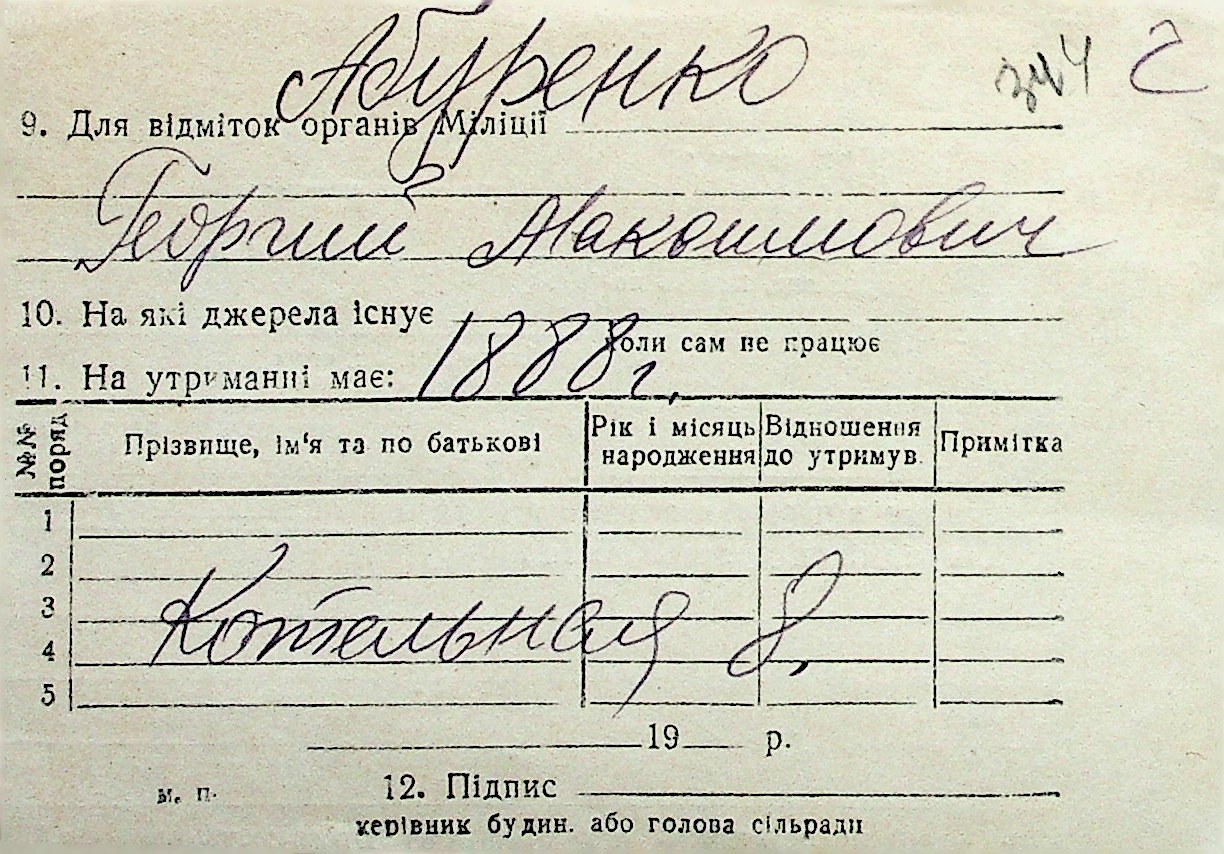 Абуренко
344 2
9. Для відміток органів Міліції
Георгий Максимович
10. На які джерела існує
коли сам не працює
11. На утриманні має: 1888г.
№№ поряд Прізвище, ім'я та по батькові Рік і місяць народження Відношення до утримув. Примітка
1
2
3
Котельная 8.
4
5
19 р.
м. п. 12. Підпис
керівник будин. або голова сільради